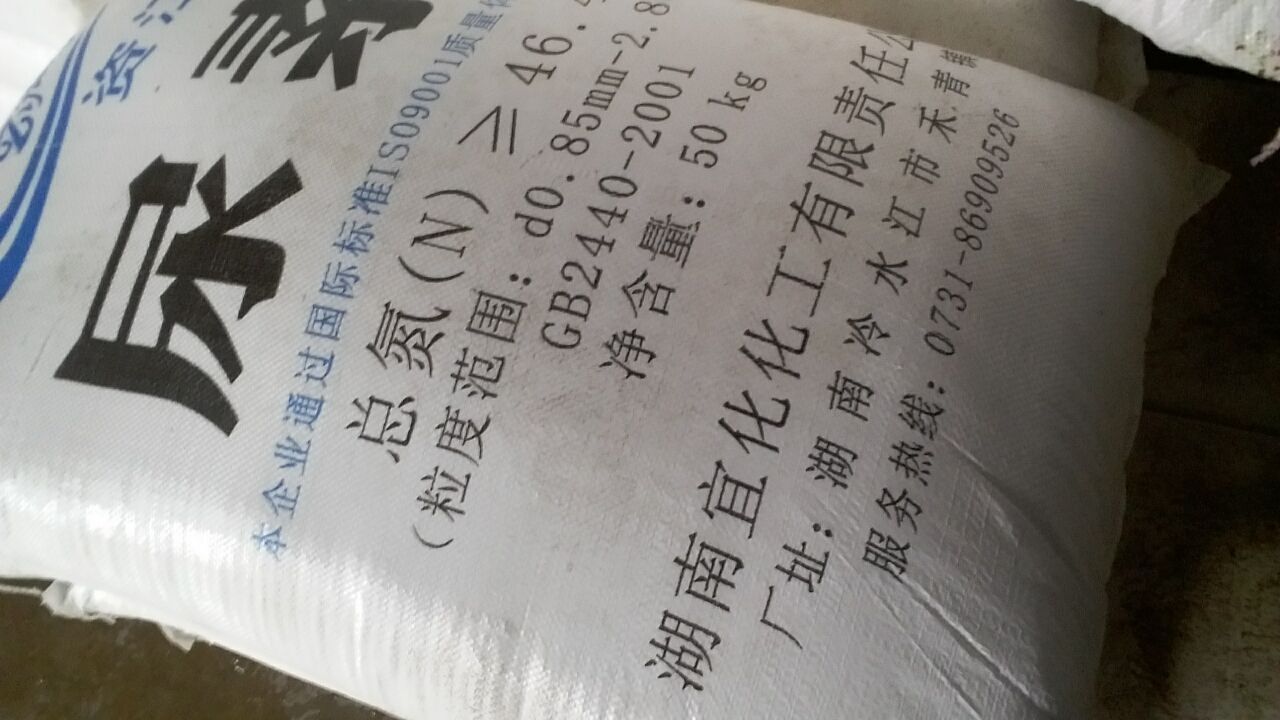 资江
尿素
本企业通过国际标准ISO9001质量体
总氮(N) ≥ 46.
(粒度范围: d0.85mm-2.8
GB2440-2001
净含量: 50 kg
湖南宜化化工有限责任公
厂址: 湖南冷水江市禾青镇
服务热线: 0731-86909526